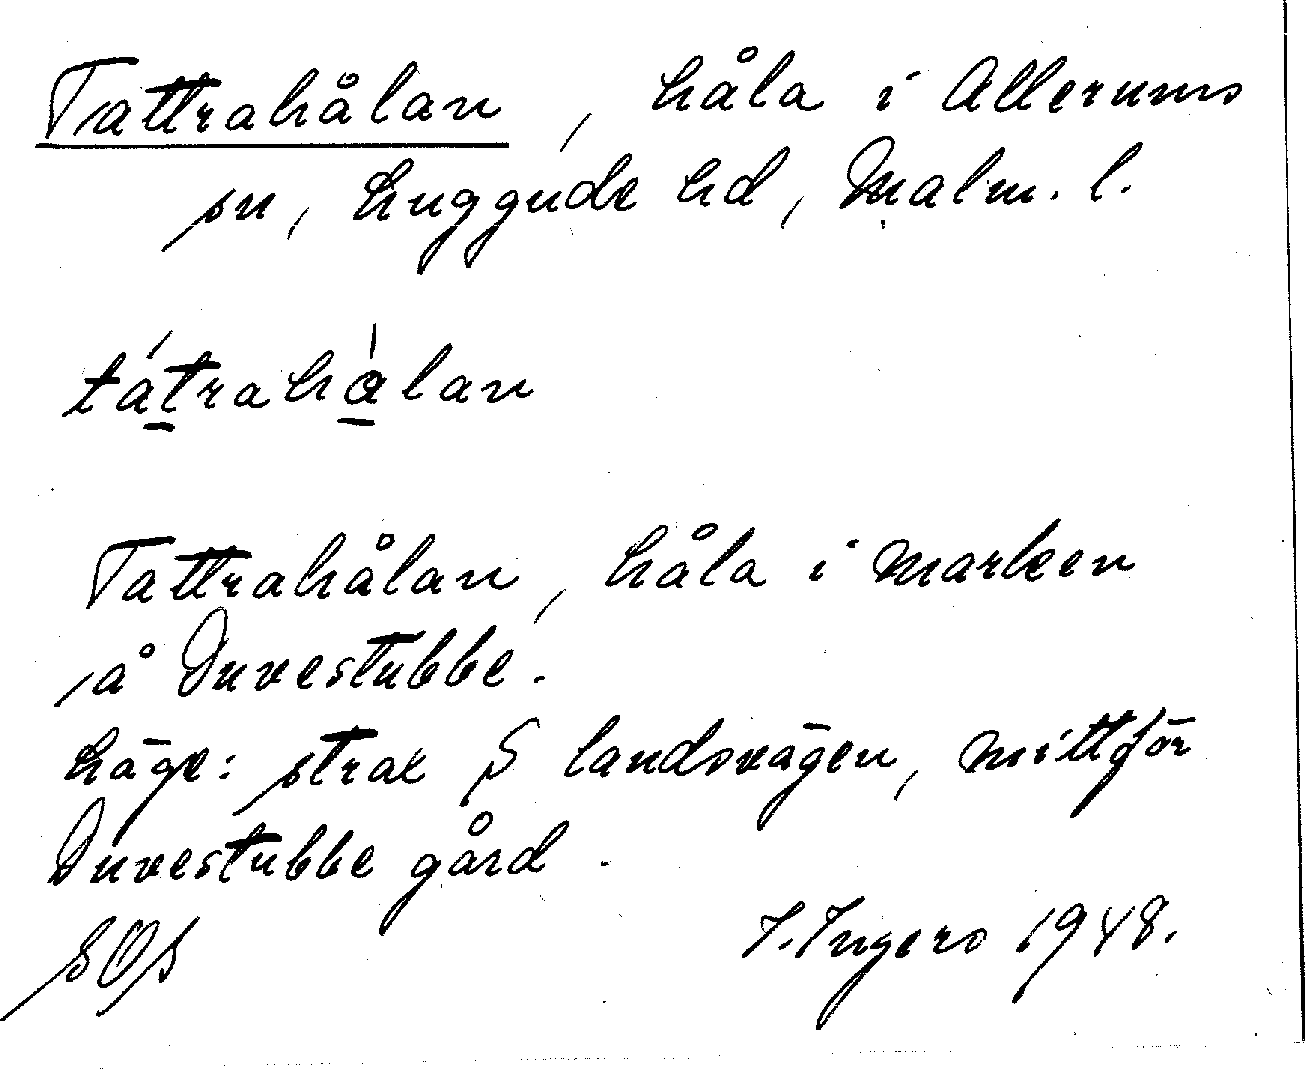 Tattrahålan, håla i Allerums
sn, Luggude hd, Malm. l.
tátrahàlan
Tattrahålan, håla i marken
å Duvestubbe.
Läge: strax S landsvägen, mittför
Duvestubbe gård.
I. Ingers 1948.